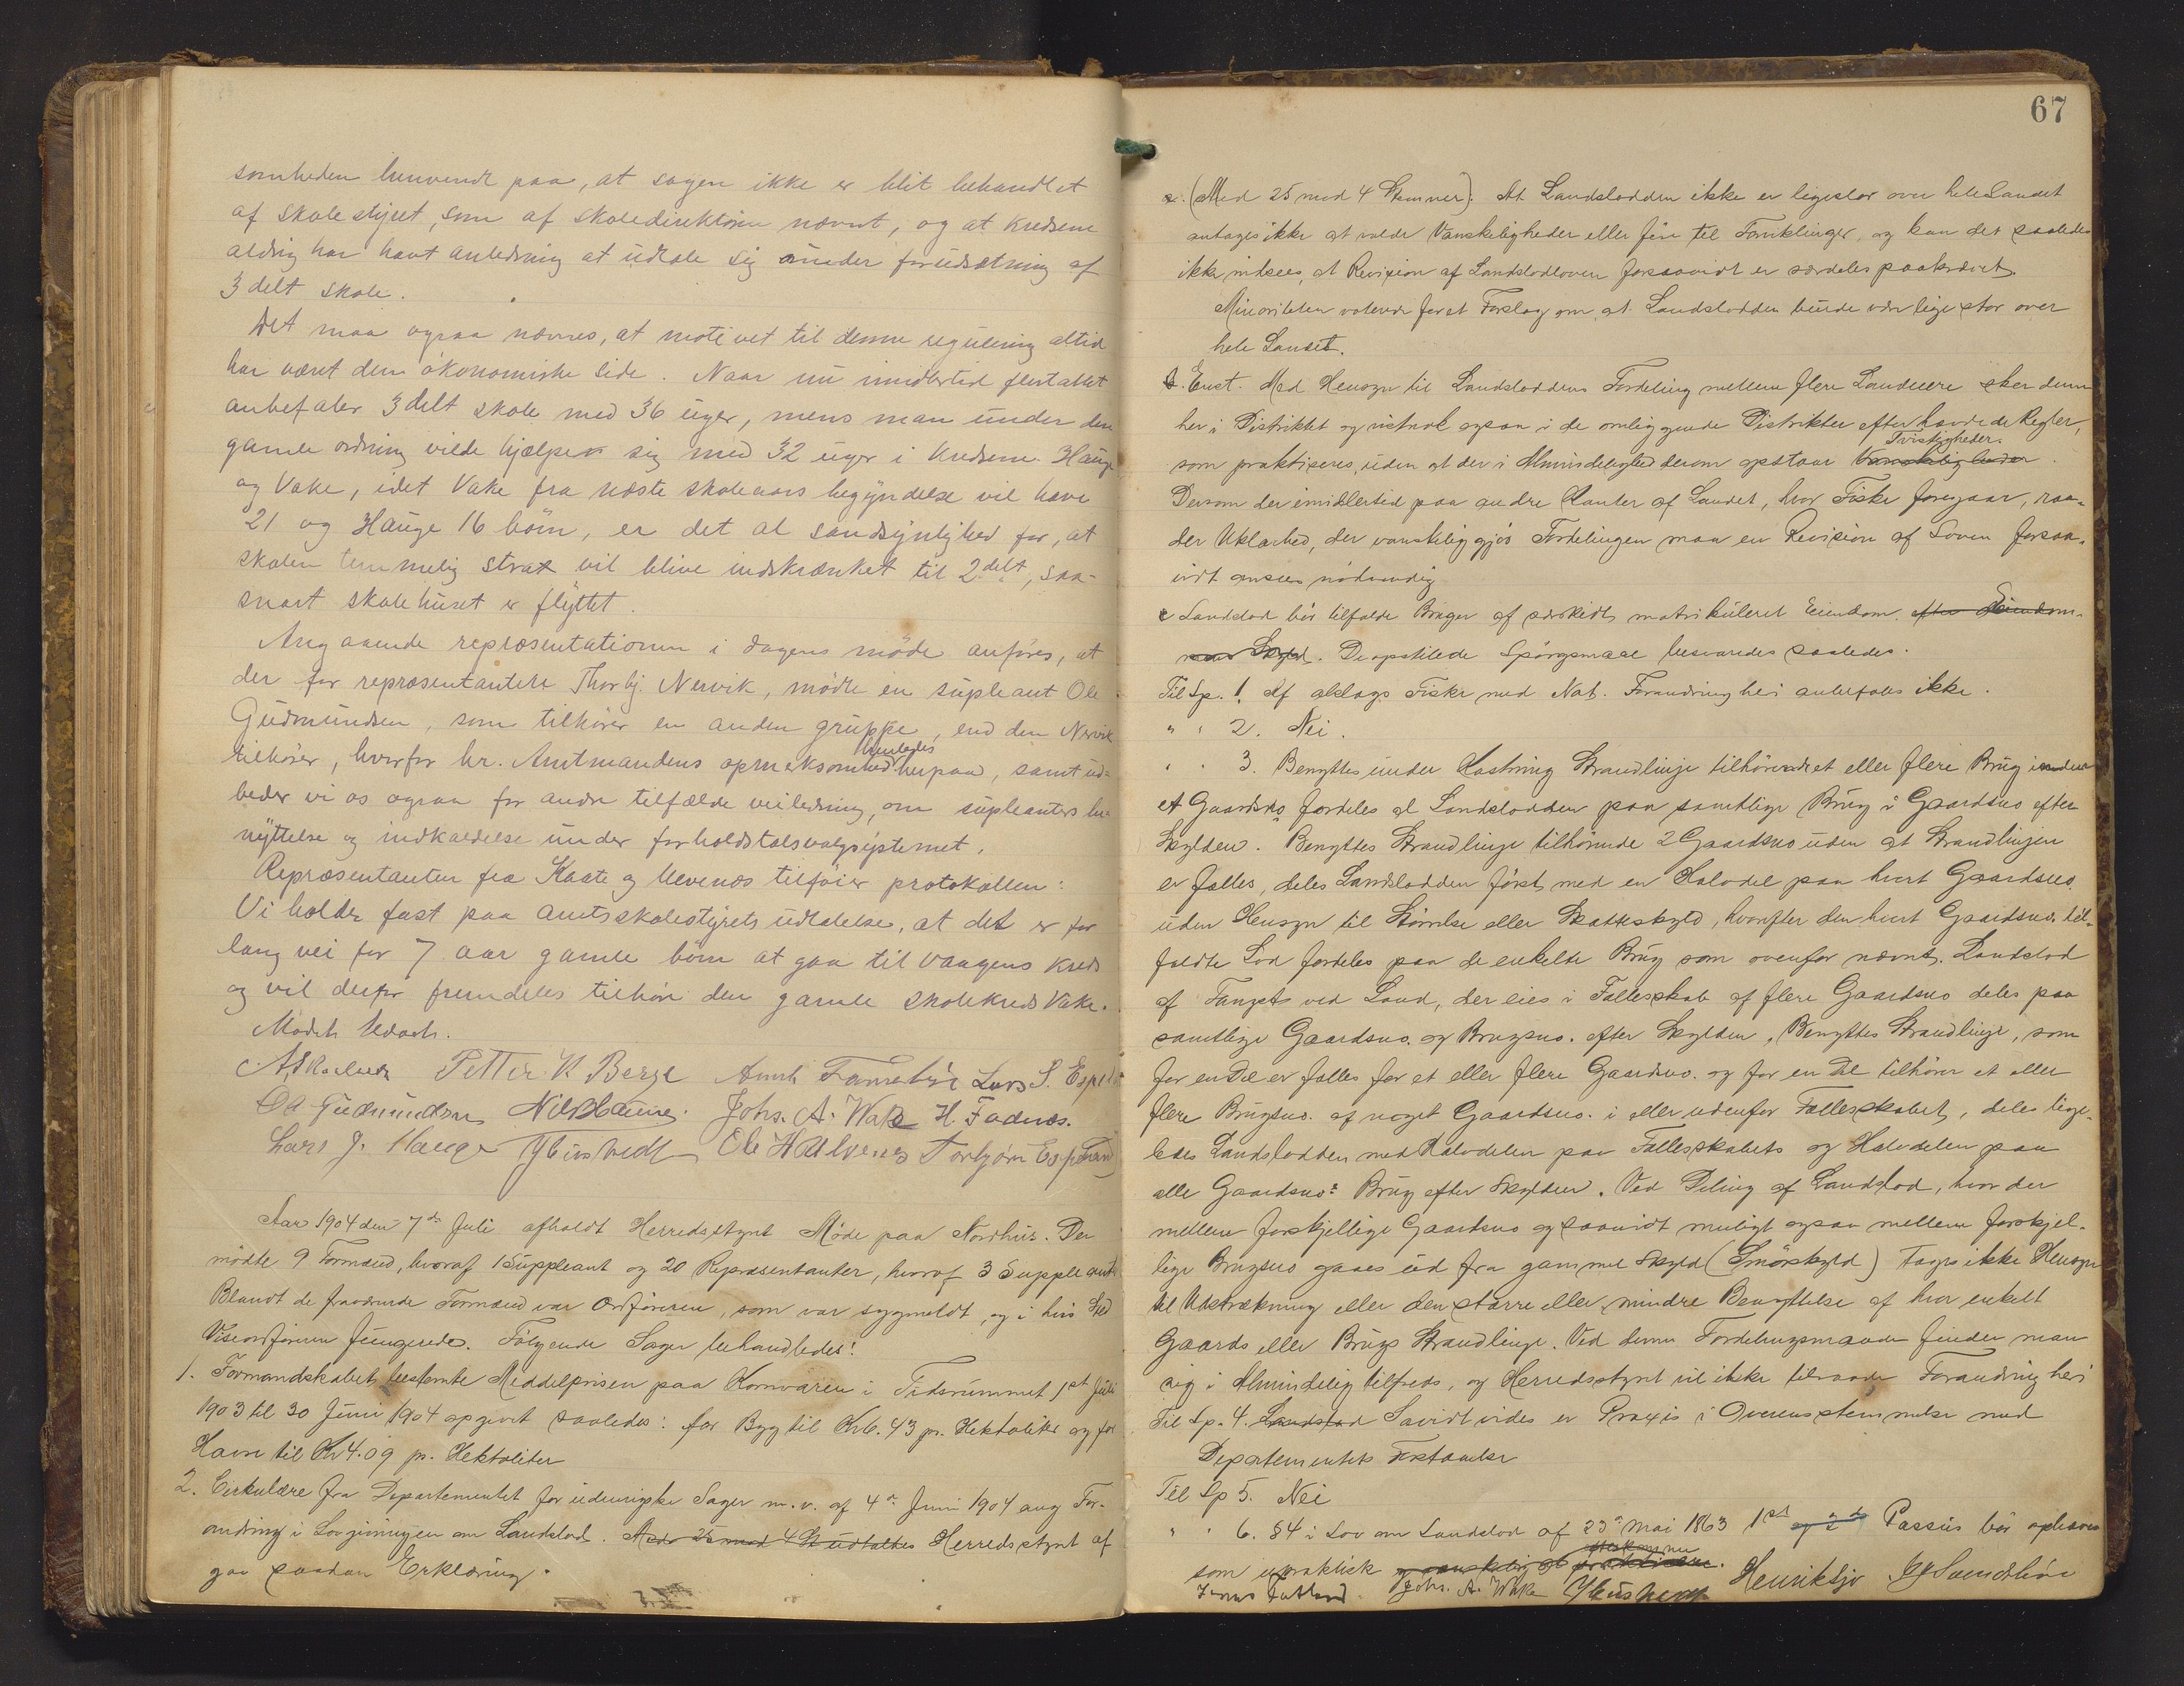 somheden henvendt paa, at sagen ikke er blit behandlet
af skolestyret, som af skoledirektøren nævnt, og at kredsene
aldrig har havt anledning at udtale sig under forudsætning af
3 delt skole.
Det maa ogsaa nævnes, at motivet til denne regulering altid
har været den økonomiske side. Naar nu imidlertid flertallet
anbefaler 3 delt skole med 36 uger, mens man under den
gamle ordning vilde hjælpe sig med 32 uger i kredsene Hauge
og Vake, idet Vake fra næste skoleaars begyndelse vil have
21 og Hauge 16 børn, er det al sandsynlighed for, at
skolen temmelig strax vil blive indskrænket til 2 delt, saa-
snart skolehuset er flyttet.
Angaaende repræsentationen i dagens møde anføres, at
der for repræsentanten Thorbj. Nervik, mødte en supleant Ole
Gudmundsen, som tilhører en anden gruppe, end den Nervik
tilhører, hvorfor hr. Amtmandens opmerksomhed henledes herpaa, samt ud-
beder vi os ogsaa for andre tilfælde veiledning, om supleanters be-
nyttelse og indkaldelse under forholdstalsvalgsystemet.
Repræsentanten fra Kaate og Ulvenes tilføier protokollen:
Vi holder fast paa amtsskolestyrets udtalelse, at det er for
lang vei for 7 aar gamle børn at gaa til Vaagens kreds
og vil derfor fremdeles tilhøre den gamle skolekreds Vake.
Mødet hævet.
Petter K Berge Lars S. Espeland
Ole Gudmundsen Nils Hauge. Johs. A. Wake H. Fadnæs.
Lars J. Hauge Ole H Ulvenes Torbjørn Espeland
Aar 1904 den 7de Juli afholdt Herredsstyret Møde paa Nordhus. Der
mødte 9 Formænd, hvoraf 1 Suppleant og 20 Repræsentanter, hvoraf 3 Suppleanter
Blandt de fraværende Formænd var Ordføreren, som var sygmeldt, og i hvis Sted
Viseordføreren fungerede. Følgende Sager behandledes:
1. Formandskabet bestemte Middelprisen paa Kornvarer i Tidsrummet 1st Juli
1903 til 30 Juni 1904 opgivet saaledes: for Byg til Kr 6.43 pr. Hektoliter og for
Havre til Kr 4.09 pr. Hektoliter
2. Cirkulære fra Departementet for udenrigske Sager m.v. af 4de Juni 1904 ang For-
andring i Lovgivningen om Landslod. Med 25 mod 4 St udtaltes Herredsstyret af
gav saadan Erklæring.
67
a. (Med 25 mod 4 Stemmer): At Landslodden ikke er ligestor over hele Landet
antages ikke at volde Vanskeligheder eller føre til Forviklinger, og kan det saaledes
ikke indsees, at Revision af Landslodloven forsaavidt er særdeles paakrævet.
Minoriteten voterede for et Forslag om, at Landslodden burde være lige stor over
hele Landet.
b. Enst. Med Hensyn til Landsloddens Fordeling mellem flere Landeiere sker denne
her i Distriktet og vistnok ogsaa i de omliggende Distrikter efter hævdede Regler,
som praktiseres, uden at der i Almindelighed derom opstaar Vanskeligheder Tvistigheder.
Dersom der imidlertid paa andre Kanter af Landet, hvor Fiske foregaar, raa-
der Uklarhed, der vanskeliggjør Fordelingen maa en Revision af Loven forsaa-
vidt ansees nødvendig
c Landslod bør tilfalde Bruger af særskildt matrikuleret Eiendom efter Eiendom-
mens Skyld. De opstillede Spørgsmaal besvaredes saaledes.
Til Sp. 1. Af alslags Fiske med Not. Forandring heri anbefales ikke.
" " 2. Nei.
" " 3. Benyttes under Kastning Strandlinje tilhørende et eller flere Brug inden
et Gaardsno fordeles al Landslodden paa samtlige Brug i Gaardsno efter
Skylden. Benyttes Strandlinje tilhørende 2 Gaardsno uden at Strandlinjen
er fælles, deles Landslodden først med en Halvdel paa hvert Gaardsno
uden Hensyn til Størrelse eller Skatteskyld, hvorefter den hvert Gaardsno. til-
faldte Lod fordeles paa de enkelte Brug som ovenfor nævnt. Landslod
af Fangst ved Land, der eies i Fællesskab af flere Gaardsno deles paa
samtlige Gaardsno. og Brugsno. efter Skylden. Benyttes Strandlinje, som
for en Del er fælles for et eller flere Gaardsno. og for en Del tilhører et eller
flere Brugsno. af noget Gaardsno. i eller udenfor Fællesskabet, deles lige-
ledes Landslodden med Halvdelen paa Fællesskabets og Halvdelen paa
alle Gaardsno? Brug efter Skylden. Ved Deling af Landslod, hvor der
mellem forskjellige Gaardsno og saavidt muligt ogsaa mellem forskjel-
lige Brugsno gaaes ud fra gammel Skyld (Smørskyld) tages ikke Hensyn
til Udstrækning eller den større eller mindre Benyttelse af hver enkelt
Gaards eller Brugs Strandlinje. Ved denne Fordelingsmaade finder man
sig i Almindelig tilfreds, og Herredsstyret vil ikke tilraade Forandring heri
Til Sp. 4. Landslod Saavidt vides er Praxis i Overensstemmelse med
Departementets Forstaaelse
Til Sp 5. Nei
" " 6. §4 i Lov om Landslod af 23de Mai 1863 1st og 2de Passus bør ophæves
som upraktisk og vanskelig at
Jonas Fatland. Johs. A. Wake Henriksjø